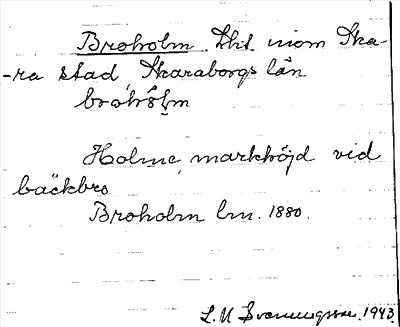 Broholm Tht. inom Ska-
-ra stad, Skaraborgs län
brohólm
Holme, markhöjd vid
bäckbro
Broholm lm. 1880.
L. M Svenungsson. 1943.